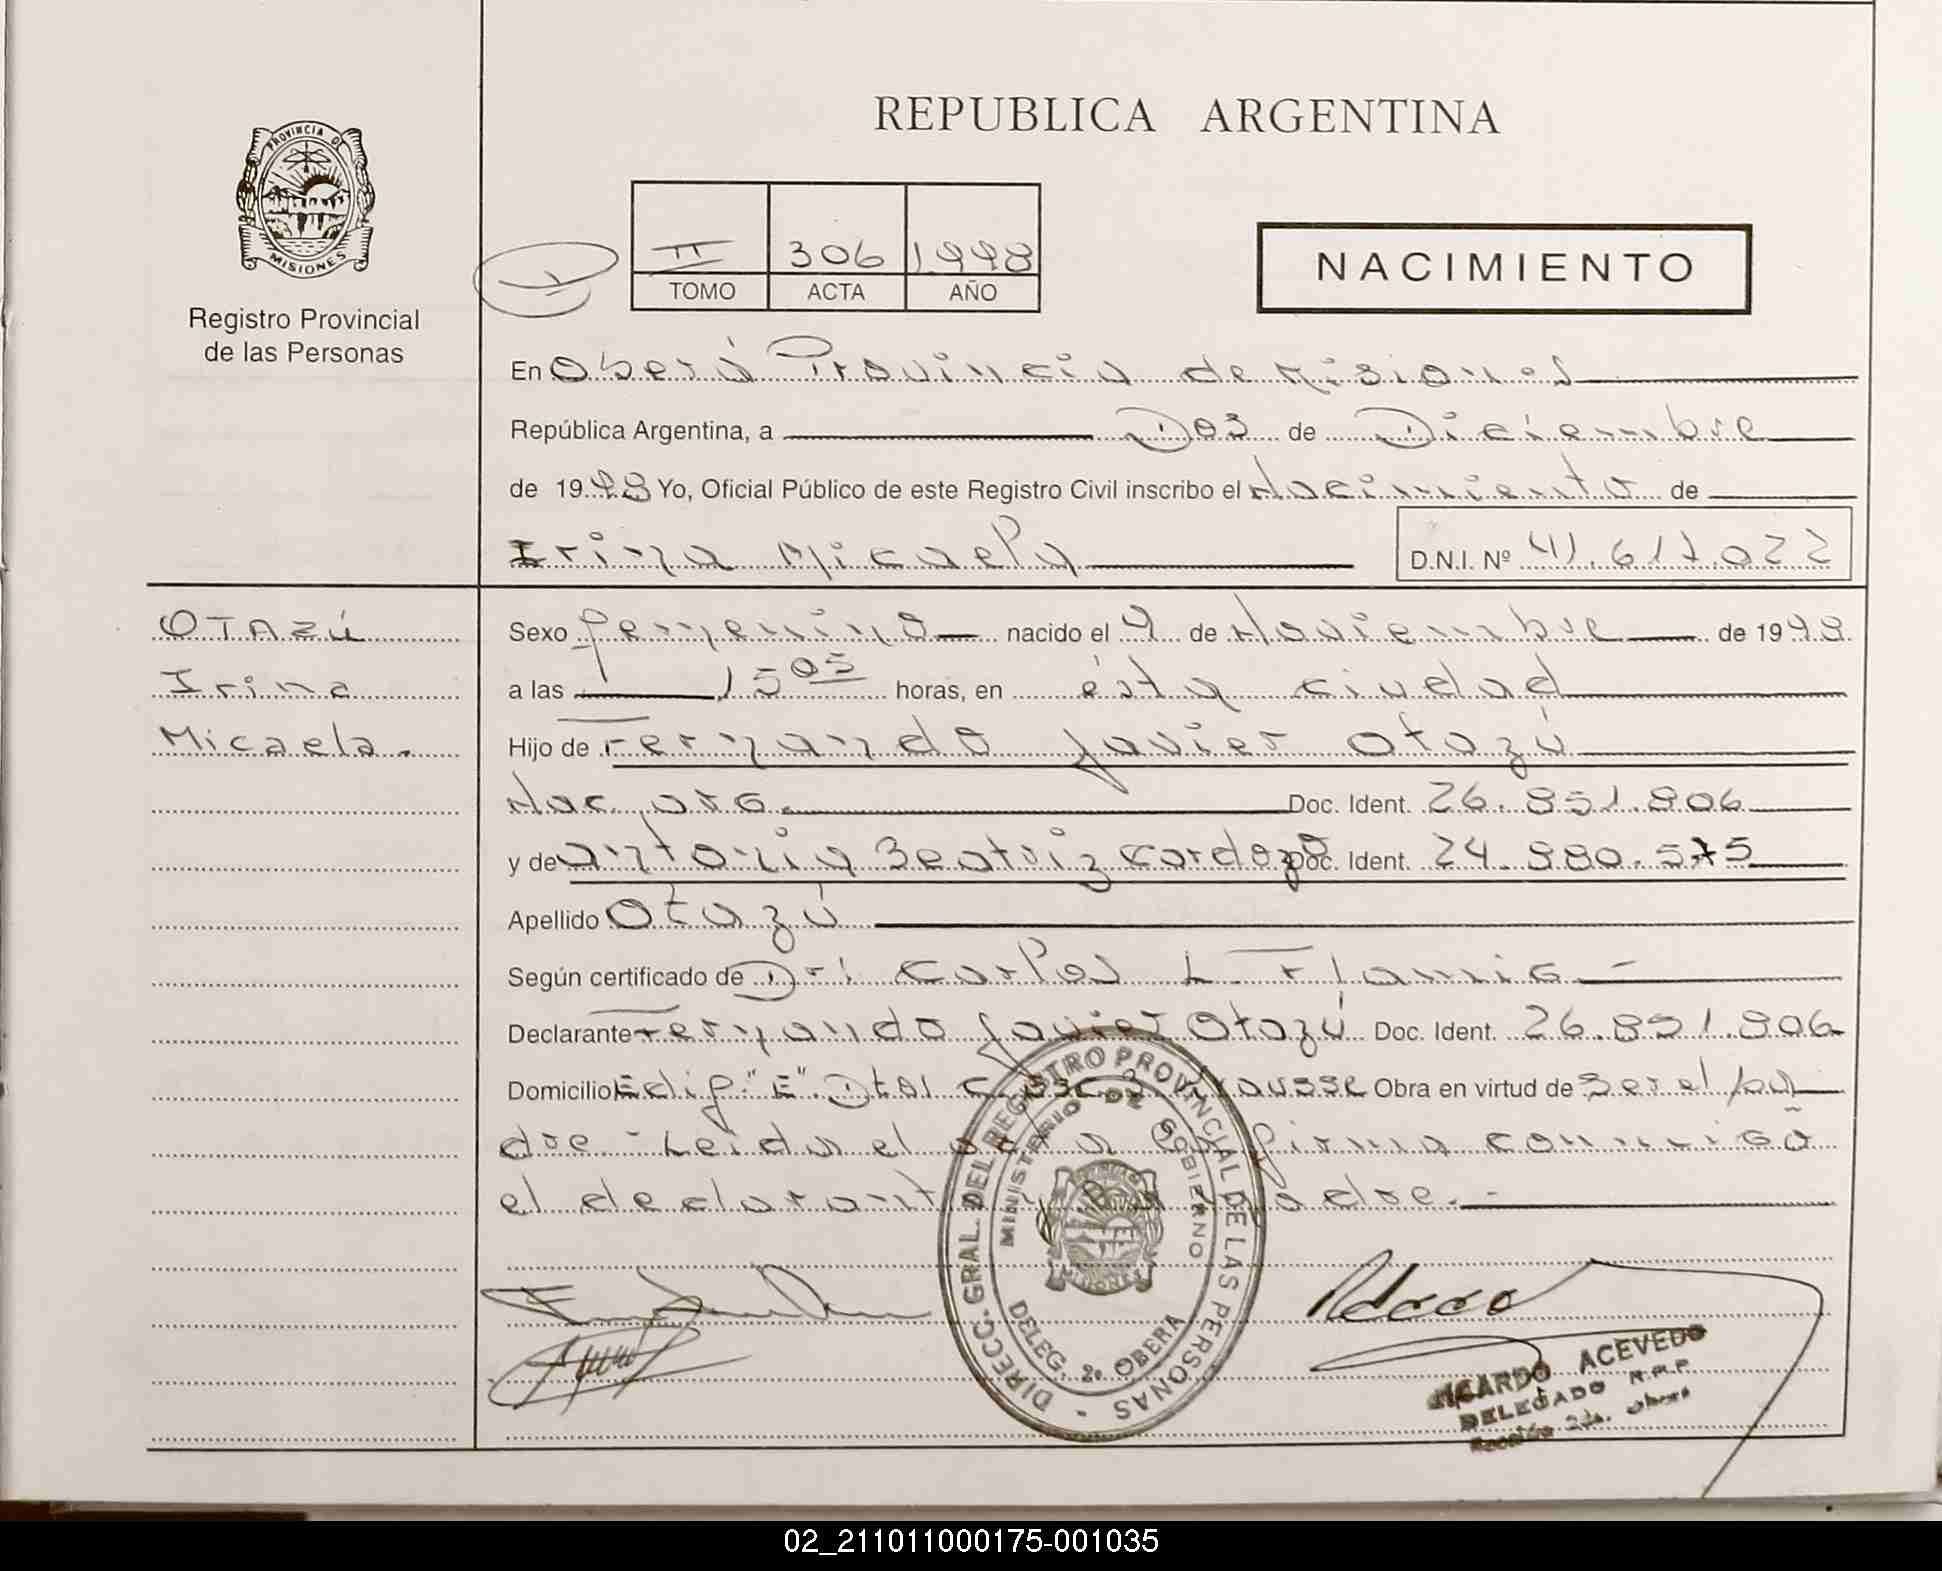 REPUBLICA ARGENTINA
PROVINCIA DE
MISIONES
Registro Provincial
de las Personas
II 306 1998
TOMO ACTA AÑO
NACIMIENTO
En Oberá Provincia de Misiones
República Argentina, a Dos de Diciembre
de 1998 Yo, Oficial Público de este Registro Civil inscribo el Nacimiento de
Irina Micaela D.N.I. Nº 41.617.022
OTAZÚ
Irina
Micaela.
Sexo femenino nacido el 9 de Noviembre de 1998
a las 15 05 horas, en ésta ciudad
Hijo de Fernando Javier Otazú
Nac. arg. Doc. Ident. 26.851.806
y de Antonia Beatriz Cardozo Doc. Ident. 24.980.575
Apellido Otazú
Según certificado de Dr. Carlos L. Flamia
Declarante Fernando Javier Otazú Doc. Ident. 26.851.806
Domicilio Edif. "E" Dtal. Obra en virtud de ser el pa
dre - Leida el acta la firma conmigo
el declarante padre.-
DIRECC. GRAL. DEL REGISTRO PROVINCIAL DE LAS PERSONAS -
MINISTERIO DE GOBIERNO
DELEG. 2º OBERA
RICARDO ACEVEDO
DELEGADO R.P.P.
Sección 2da. Oberá
02_211011000175-001035